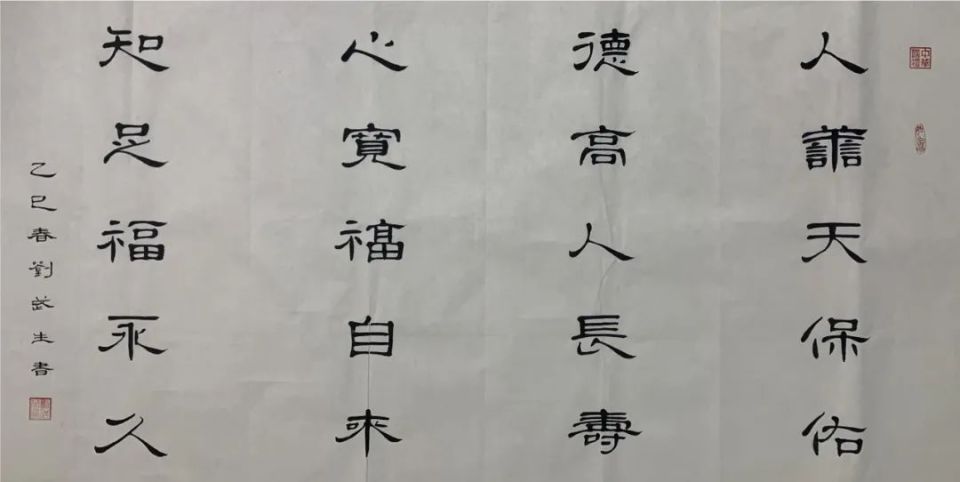 人譱天保佑
德高人長壽
心寬福自来
知足福永久
乙巳春劉武生書